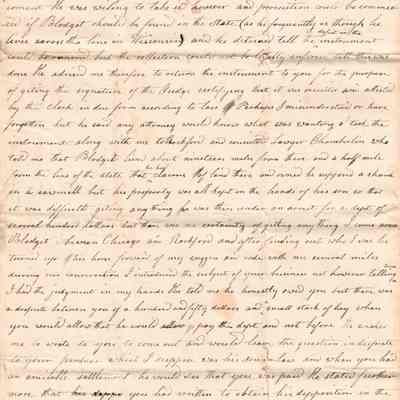 concern He was willing to take it however and prosecution could be commenced
if Blodget should be found in the state (as he frequently is though he
lives across the line in Wisconsin) and he did and tell the instrument
could be but the collection could not be enforced till this was
done He advised me therefore to return the instrument to you for the purpose
of getting the signature of the Judge certifying that it was
by the Clerk in due form according to law Perhaps I misunderstood or have
forgotten but he said any attorney would know what was wanting I took the
instrument along with me to Rockford and consulted Lawyer Chamberlin who
told me that Blodget lives about nineteen miles from there and a half mile
from the line of the state that lives there and owned he supposed a share
in a sawmill but his property was all kept in the hands of his son so that
it was difficult getting anything he was then under an arrest for a dept of
several hundred dollars but there was no certainty of getting anything I come across
Blodget between Chicago and Rockford and after finding out who I was he
turned up the horse forward of my waggon and rode with me several miles
during our conversation I introduced the subject of your business not however telling him
I had the judgment in my hands He told me he honestly owed you but there was
a dispute between you of a hundred and fifty dollars and small stack of hay when
you would allow that he would pay the dept and not before He wishes
me to write to you to come out and would leave the question in dispute
to your which I suppose was his and when you had
an amicable settlement he would see that you was paid He stated further
more that you had written to obtain his disposition in the